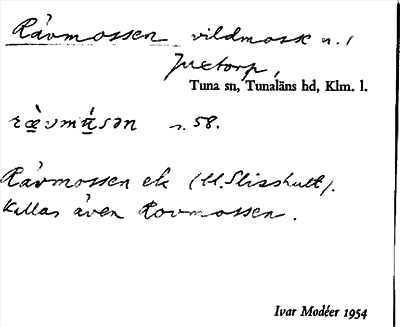 Rävmossen vildmosse n. /
Juetorp,
Tuna sn, Tunaläns hd, Klm. l.
s. 58.
Rävmossen ek (U. Slisshult).
Kallas även Rovmossen.
Ivar Modéer 1954